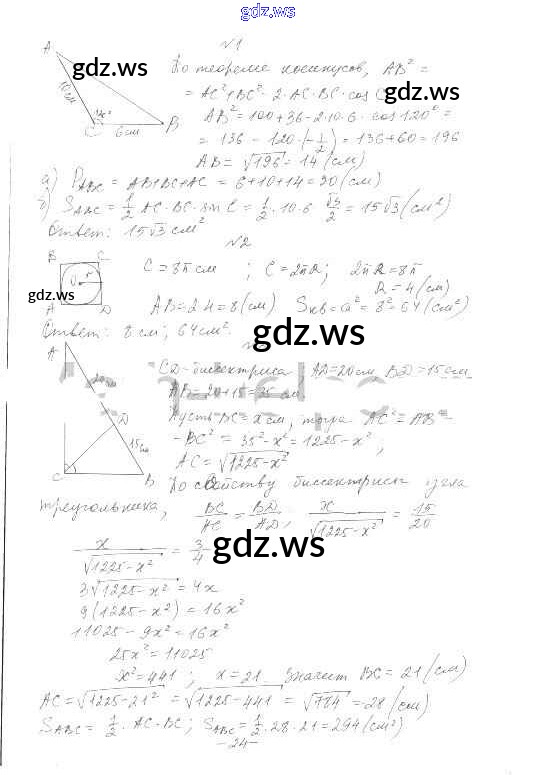 gdz.ws
№1
A
10 см
120°
C 6 см B
По теореме косинусов, AB² =
= AC² + BC² - 2 · AC · BC · cos C
AB² = 100 + 36 - 2 · 10 · 6 · cos 120° =
= 136 - 120 · (-1/2) = 136 + 60 = 196
AB = √196 = 14 (см)
а) P_ABC = AB + BC + AC = 6 + 10 + 14 = 30 (см)
б) S_ABC = 1/2 AC · BC · sin C = 1/2 · 10 · 6 √3/2 = 15√3 (см²)
Ответ: 15√3 см²
№2
B C
O r
A D
C = 8π см ; C = 2πR ; 2πR = 8π
R = 4 (см)
AB = 2·4 = 8 (см) S_кв = a² = 8² = 64 (см²)
Ответ: 8 см ; 64 см².
A
20 см
D
15 см
C B
CD - биссектриса, AD = 20 см BD = 15 см
AB = 20 + 15 = 35 см
Пусть BC = x см, тогда AC² = AB² -
- BC² = 35² - x² = 1225 - x² ;
AC = √1225 - x²
По свойству биссектрисы угла
треугольника, BC/AC = BD/AD ; x/√1225 - x² = 15/20
x/√1225 - x² = 3/4
3√1225 - x² = 4x
9(1225 - x²) = 16x²
11025 - 9x² = 16x²
25x² = 11025
x² = 441 ; x = 21. Значит BC = 21 (см)
AC = √1225 - 21² = √1225 - 441 = √784 = 28 (см)
S_ABC = 1/2 · AC · BC ; S_ABC = 1/2 · 28 · 21 = 294 (см²)
-24-
gdz.ws
gdz.ws
gdz.ws
gdz.ws
gdz.ws
gdz.ws
gdz.ws
gdz.ws